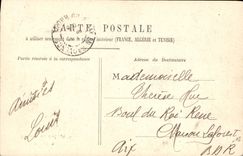 CARTE POSTALE
à utiliser seulement dans le service intérieur (FRANCE, ALGÉRIE et TUNISIE)
Partie réservée à la correspondance
Adresse du Destinataire
Mademoiselle
Thérèse Rue
Boul du Roi René
Amitiés
Louis
Aix
B.D.R